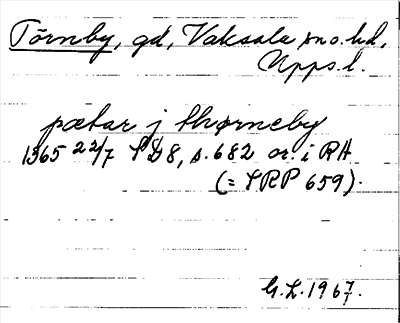 Törnby, gd, Vaksala sn o. hd,
Upps. l.
pætar j thørneby
1365 22/7 SD 8, s. 682 or. i RA
(= SRP 659).
G. L. 1967